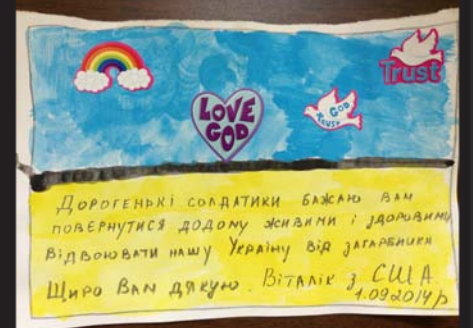 Trust
LOVE
GOD
GOD
TRUST
Дорогенькі солдатики бажаю вам
повернутися додому живими і здоровими
відвоювати нашу Україну від загарбника
Щиро Вам дякую. Віталік з США.
1.09.2014р